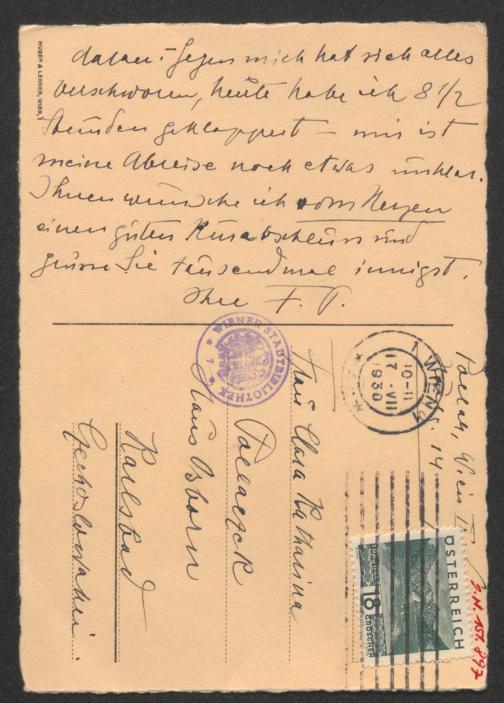 HUBER & LERNER, WIEN, I
daran. – Gegen mich hat sich alles
verschworen, heute habe ich 8 1/2
Stunden geklappert – mir ist
meine Abreise noch etwas unklar.
Ihnen wünsche ich vom Herzen
einen guten Kurabschluss und
grüsse Sie tausendmal innigst.
Ihre F. P.
* WIENER STADTBIBLIOTHEK * 7
1 WIEN 1
10-11
17. VII
1930
Pollak, Wien I.
14
Frau Clara Katharina
Pollaczek
Haus Osborn
Karlsbad
Czechoslovakei.
ÖSTERREICH
18
GROSCHEN
I.N. 151.897